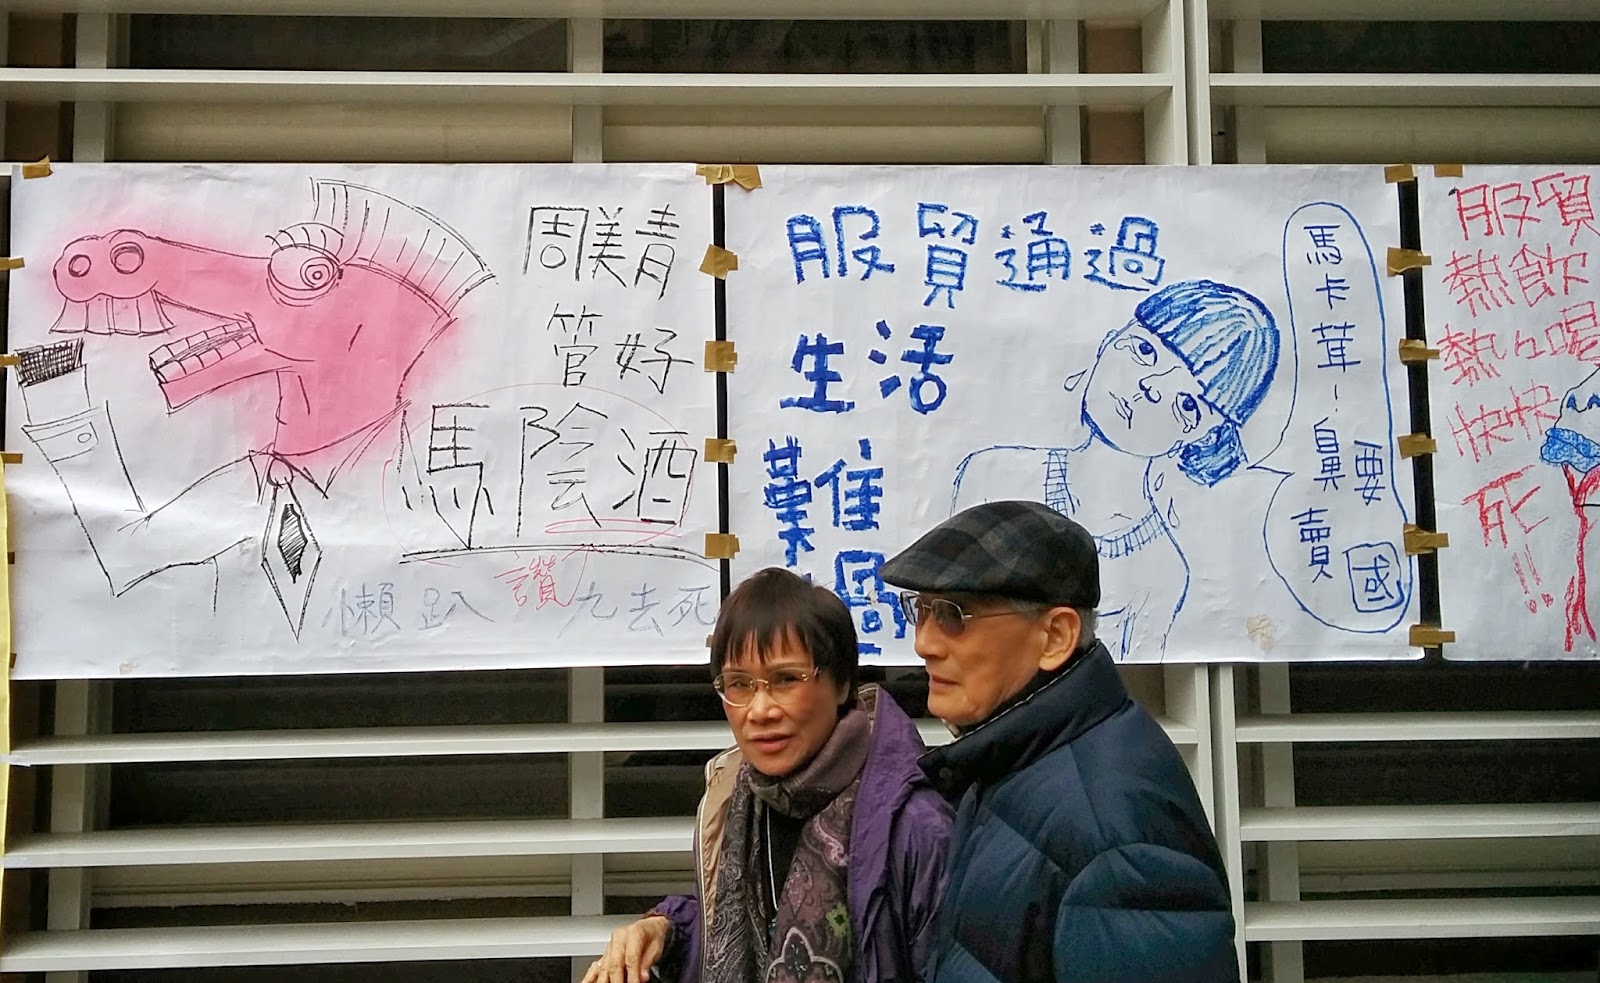 周美青
管好
馬陰酒
讚
懶趴 九去死
服貿通過
生活
難過
馬卡茸！鼻要
賣國
服貿
熱飲
熱ㄉ喝
快快
死!!